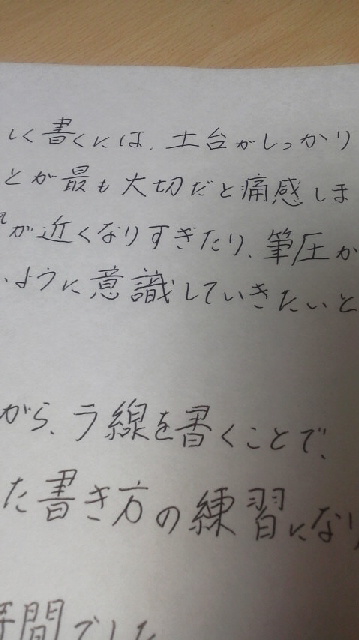 しく書くには、土台がしっかり
とが最も大切だと痛感しま
が近くなりすぎたり、筆圧か
いように意識していきたいと
がら、ラ線を書くことで、
た書き方の練習になり
時間でした